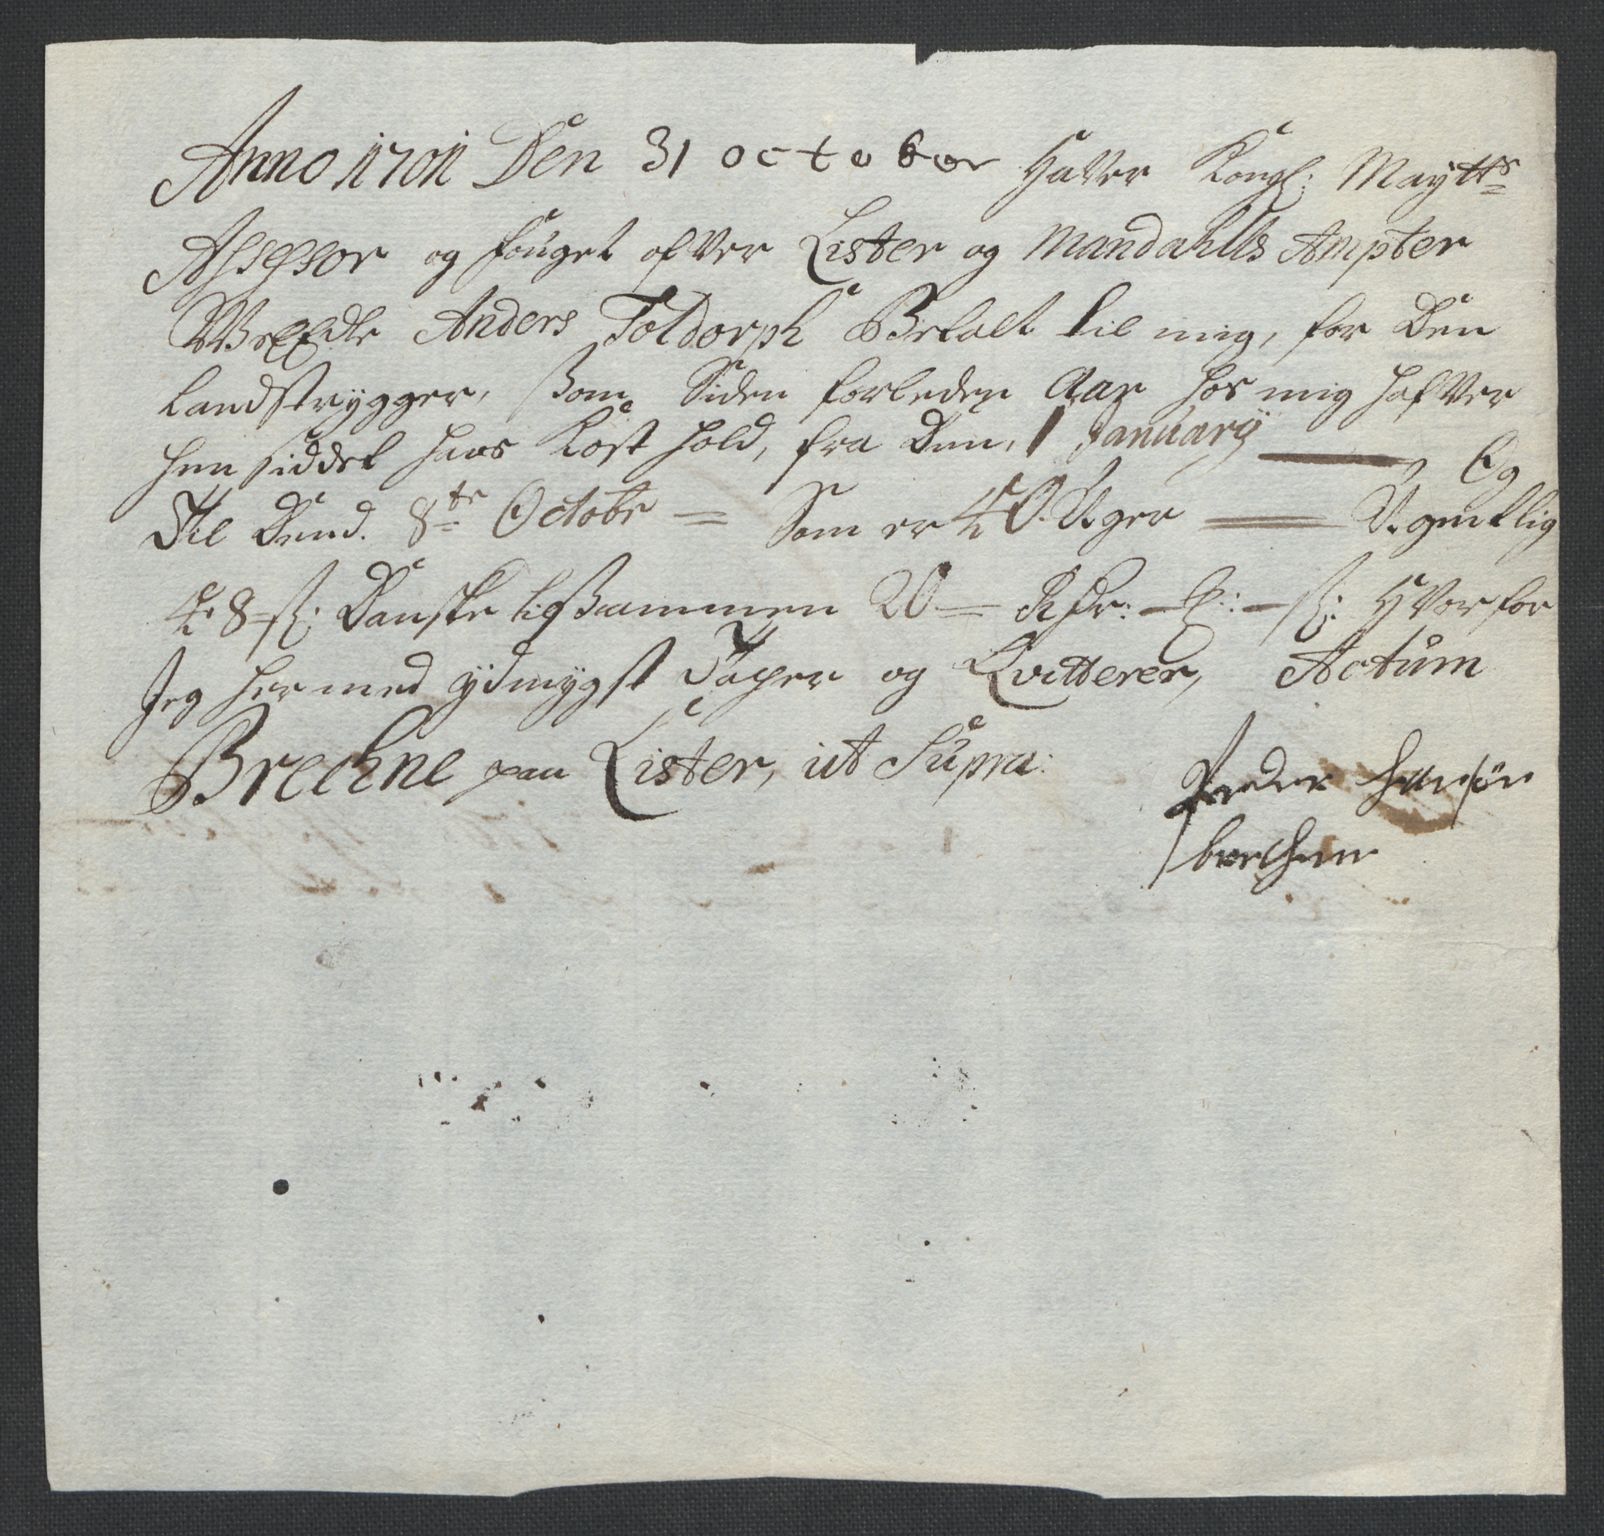 Anno 1701 Den 31 october Haver Kongl: Maytts
Assessor og fouget ofver Lister og Mandahlls Ampter
Anders Toldorph Betalt til mig, for Den
landstrygger, som Siden forleden Aar hos mig hafver
hensiddet hans Kost hold, fra Den, 1 January Og
Til Dend. 8te Octobr = Som er 40 Uger Ugentlig
48 s: Danske tilsammen 20 Rdr: – : – s: Hvorfor
Jeg hermed ydmygst Tacher og Qvitterer, Actum
Brechne paa Lister, ut Supra:
Peder hansøn
brechne